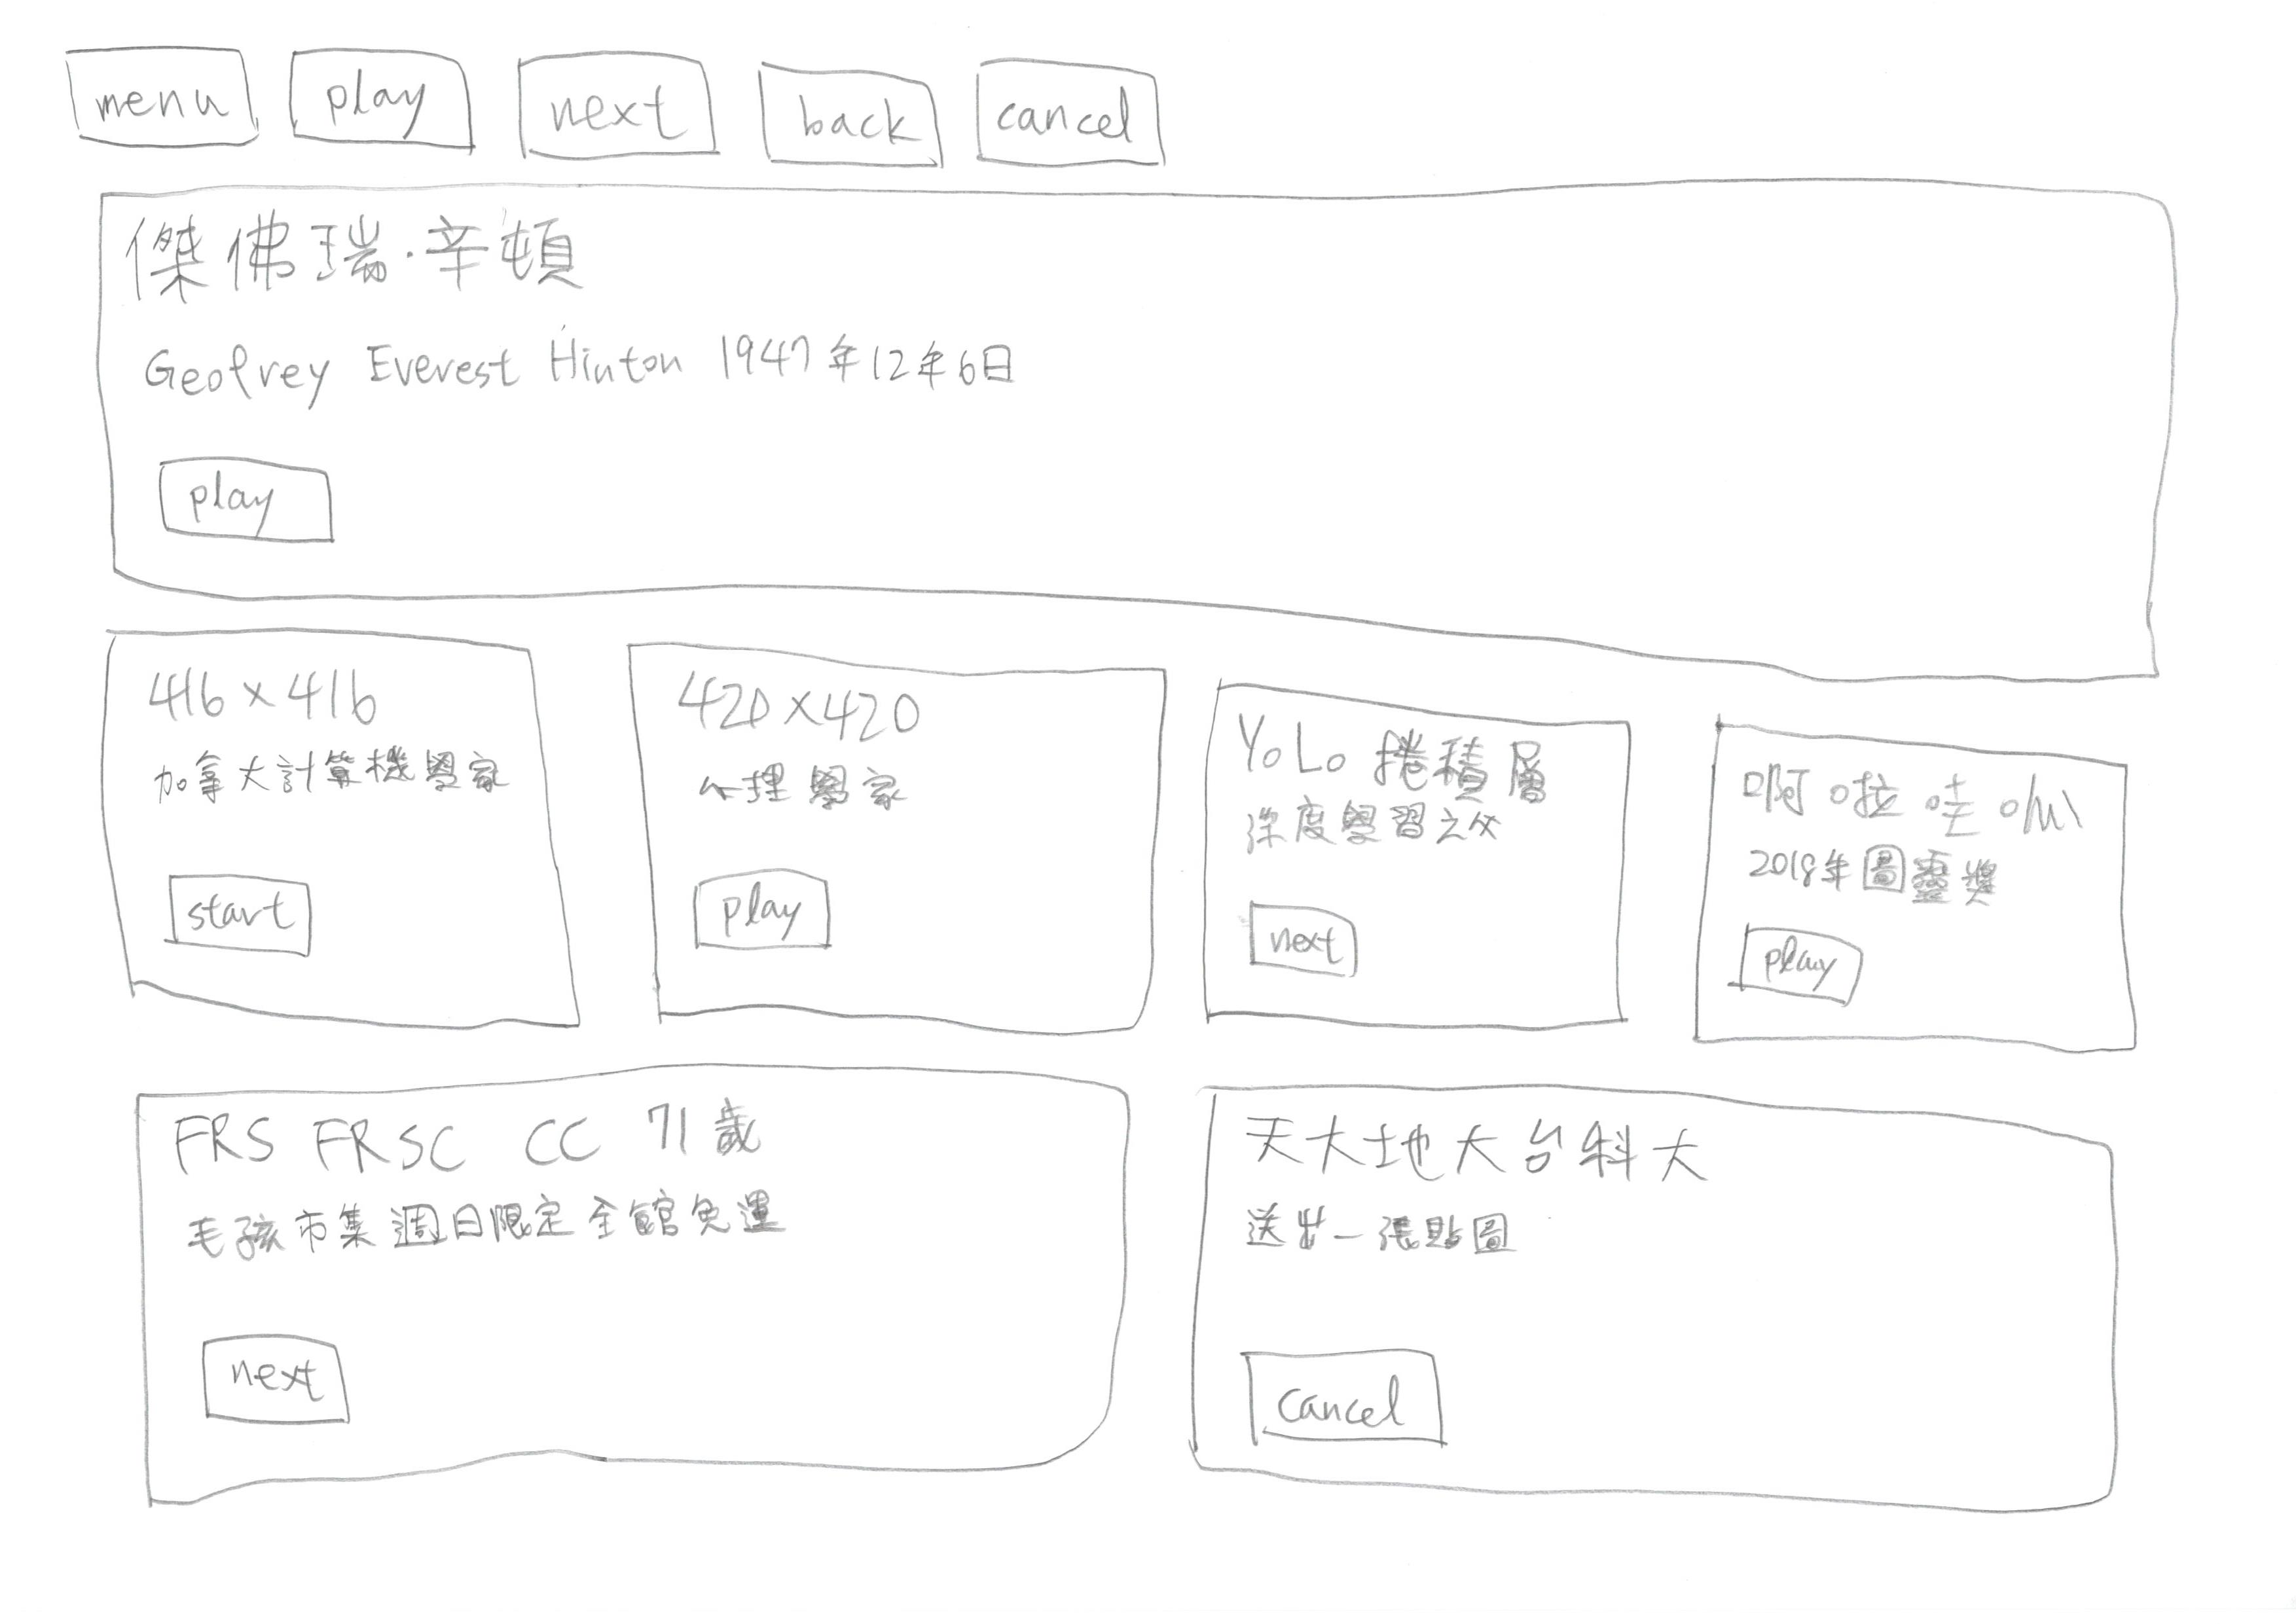 menu play next back cancel
傑佛瑞·辛頓
Geofrey Everest Hinton 1947年12年6日
play
416×416
加拿大計算機學家
start
420×420
心理學家
play
YoLo 捲積層
深度學習之父
next
啊啦哇嘁
2018年圖靈獎
play
FRS FRSC CC 71歲
毛孩市集週日限定全館免運
next
天大地大台科大
送出一張貼圖
cancel